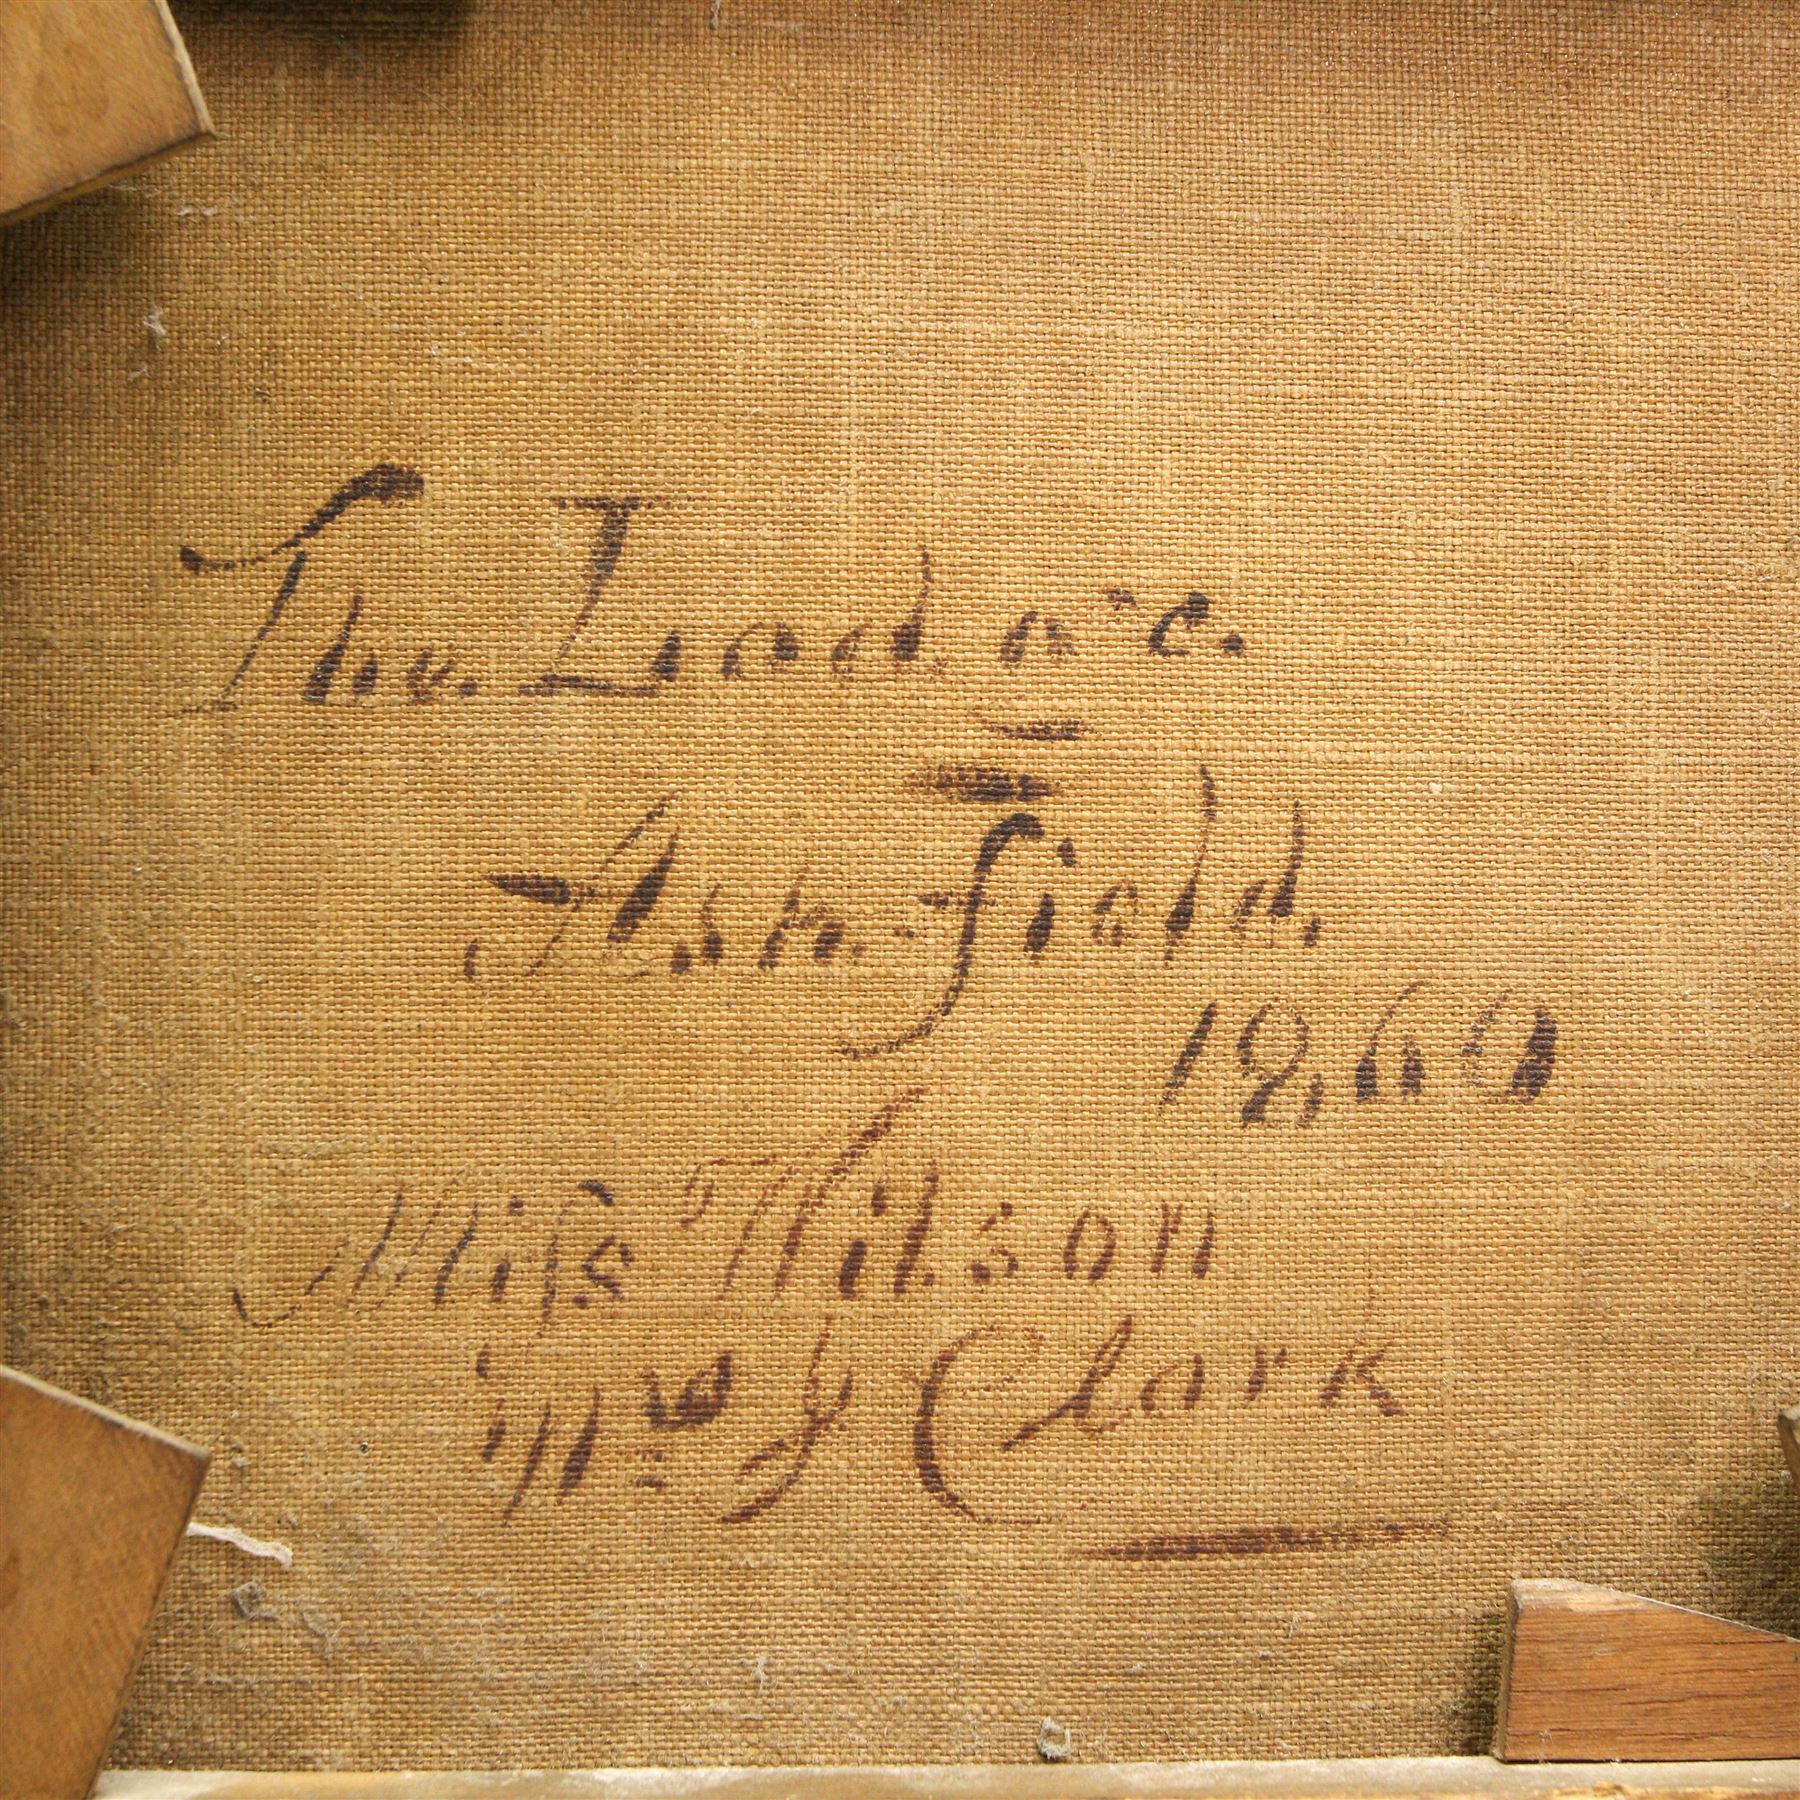 The. Lodore.
Ash.field.
1860
Miſs Wilson
Mrs J Clark